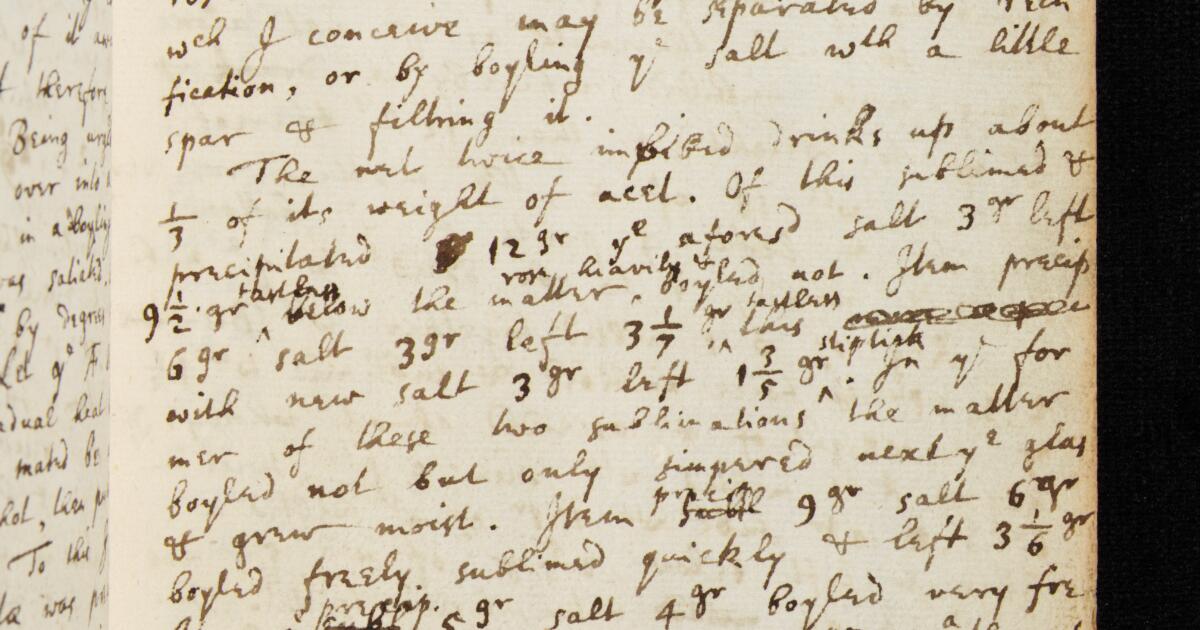 of it
therefore
Being
over into
in a boyling
was
by degrees
Let yᵉ
heat
mated be
hot, then
To this
was
wch I conceive may be separated by recti
fication, or by boyling yᵉ salt wth a little
spar & filtring it.
The net twice imbibed drinks up about
1/3 of its weight of acet. Of this sublimed &
precipitated 12 gr yᵉ aforesd salt 3 gr left
9 1/2 gr tastless below the matter rose heavily & boyled not. Item precip
6 gr salt 3 gr left 3 1/7 gr tastless this
with new salt 3 gr left 1 3/5 gr stiptick. In yᵉ for
mer of these two sublimations the matter
boyled not but only simpered next yᵉ glas
& grew moist. Item precip 9 gr salt 6 gr
boyled freely sublimed quickly & left 3 1/6 gr
precip. 5 gr salt 4 gr boyled very fre